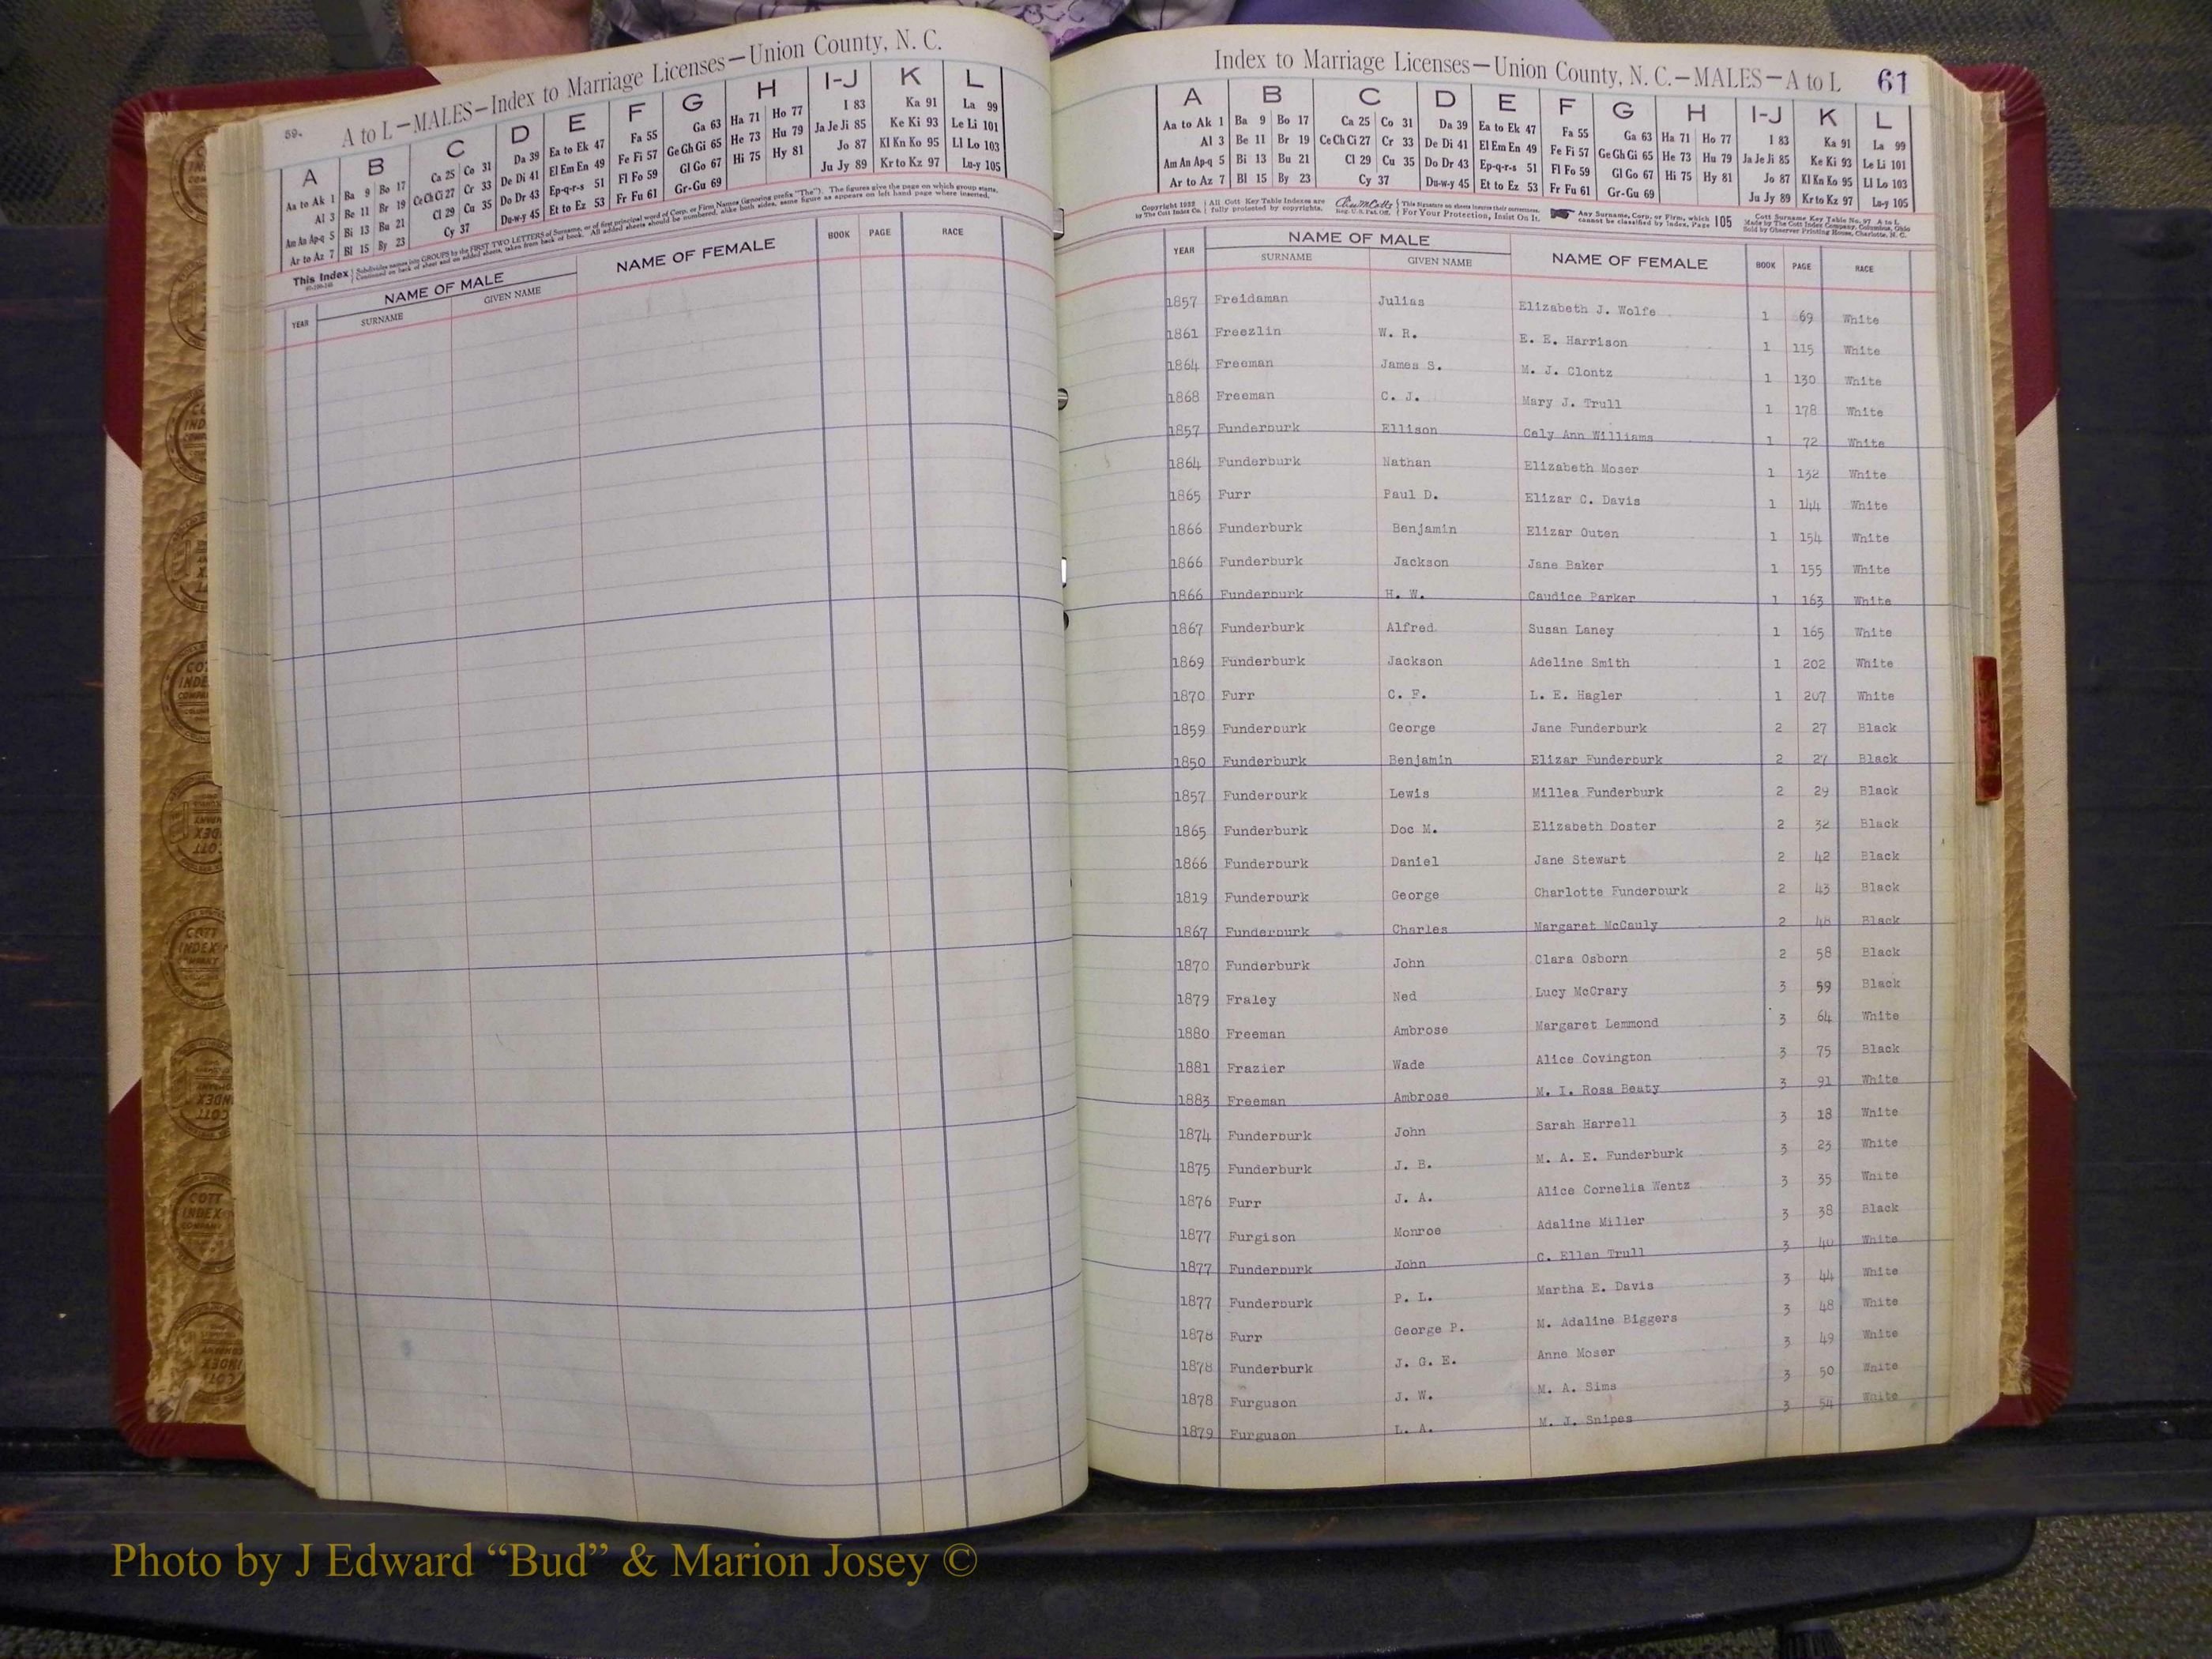 59.
A to L—MALES—Index to Marriage Licenses—Union County, N. C.
A B C D E F G H I-J K L
Aa to Ak 1 Ba 9 Bo 17 Ca 25 Co 31 Da 39 Ea to Ek 47 Fa 55 Ga 63 Ha 71 Ho 77 I 83 Ka 91 La 99
Al 3 Be 11 Br 19 Ce Ch Ci 27 Cr 33 De Di 41 El Em En 49 Fe Fi 57 Ge Gh Gi 65 He 73 Hu 79 Ja Je Ji 85 Ke Ki 93 Le Li 101
Am An Ap-q 5 Bi 13 Bu 21 Cl 29 Cu 35 Do Dr 43 Ep-q-r-s 51 Fl Fo 59 Gl Go 67 Hi 75 Hy 81 Jo 87 Kl Kn Ko 95 Ll Lo 103
Ar to Az 7 Bl 15 By 23 Cy 37 Du-w-y 45 Et to Ez 53 Fr Fu 61 Gr-Gu 69 Ju Jy 89 Kr to Kz 97 Lu-y 105
This Index Subdivides names into GROUPS by the FIRST TWO LETTERS of Surname, or of first principal word of Corp. or Firm Names (ignoring prefix "The"). The figures give the page on which group starts.
Continued on back of sheet and on added sheets, taken from back of book. All added sheets should be numbered, alike both sides, same figure as appears on left hand page where inserted.
YEAR NAME OF MALE NAME OF FEMALE BOOK PAGE RACE
SURNAME GIVEN NAME
Index to Marriage Licenses—Union County, N. C.—MALES—A to L 61
A B C D E F G H I-J K L
Aa to Ak 1 Ba 9 Bo 17 Ca 25 Co 31 Da 39 Ea to Ek 47 Fa 55 Ga 63 Ha 71 Ho 77 I 83 Ka 91 La 99
Al 3 Be 11 Br 19 Ce Ch Ci 27 Cr 33 De Di 41 El Em En 49 Fe Fi 57 Ge Gh Gi 65 He 73 Hu 79 Ja Je Ji 85 Ke Ki 93 Le Li 101
Am An Ap-q 5 Bi 13 Bu 21 Cl 29 Cu 35 Do Dr 43 Ep-q-r-s 51 Fl Fo 59 Gl Go 67 Hi 75 Hy 81 Jo 87 Kl Kn Ko 95 Ll Lo 103
Ar to Az 7 Bl 15 By 23 Cy 37 Du-w-y 45 Et to Ez 53 Fr Fu 61 Gr-Gu 69 Ju Jy 89 Kr to Kz 97 Lu-y 105
Copyright 1932 All Cott Key Table Indexes are This Signature on sheets insures their correctness. Any Surname, Corp. or Firm, which 105 Cott Surname Key Table No. 97 A to L
by The Cott Index Co. fully protected by copyrights. Reg. U.S. Pat. Off. For Your Protection, Insist On It. cannot be classified by Index, Page Made by The Cott Index Company, Columbus, Ohio
Sold by Observer Printing House, Charlotte, N. C.
YEAR NAME OF MALE NAME OF FEMALE BOOK PAGE RACE
SURNAME GIVEN NAME
1857 Freidaman Julias Elizabeth J. Wolfe 1 69 White
1861 Freezlin W. R. E. E. Harrison 1 115 White
1864 Freeman James S. M. J. Clontz 1 130 White
1868 Freeman C. J. Mary J. Trull 1 178 White
1857 Funderburk Ellison Cely Ann Williams 1 72 White
1864 Funderburk Nathan Elizabeth Moser 1 132 White
1865 Furr Paul D. Elizar C. Davis 1 144 White
1866 Funderburk Benjamin Elizar Outen 1 154 White
1866 Funderburk Jackson Jane Baker 1 155 White
1866 Funderburk H. W. Caudice Parker 1 163 White
1867 Funderburk Alfred Susan Laney 1 165 White
1869 Funderburk Jackson Adeline Smith 1 202 White
1870 Furr C. F. L. E. Hagler 1 207 White
1859 Funderburk George Jane Funderburk 2 27 Black
1850 Funderburk Benjamin Elizar Funderburk 2 27 Black
1857 Funderburk Lewis Millea Funderburk 2 29 Black
1865 Funderburk Doc M. Elizabeth Doster 2 32 Black
1866 Funderburk Daniel Jane Stewart 2 42 Black
1819 Funderburk George Charlotte Funderburk 2 43 Black
1867 Funderburk Charles Margaret McCauly 2 48 Black
1870 Funderburk John Clara Osborn 2 58 Black
1879 Fraley Ned Lucy McCrary 3 59 Black
1880 Freeman Ambrose Margaret Lemmond 3 64 White
1881 Frazier Wade Alice Covington 3 75 Black
1883 Freeman Ambrose M. I. Rosa Beaty 3 91 White
1874 Funderburk John Sarah Harrell 3 18 White
1875 Funderburk J. B. M. A. E. Funderburk 3 23 White
1876 Furr J. A. Alice Cornelia Wentz 3 35 White
1877 Furgison Monroe Adaline Miller 3 38 Black
1877 Funderburk John C. Ellen Trull 3 40 White
1877 Funderburk P. L. Martha E. Davis 3 44 White
1878 Furr George P. M. Adaline Biggers 3 48 White
1878 Funderburk J. G. E. Anne Moser 3 49 White
1878 Furguson J. W. M. A. Sims 3 50 White
1879 Furguson L. A. M. J. Snipes 3 54 White
Photo by J Edward “Bud” & Marion Josey ©